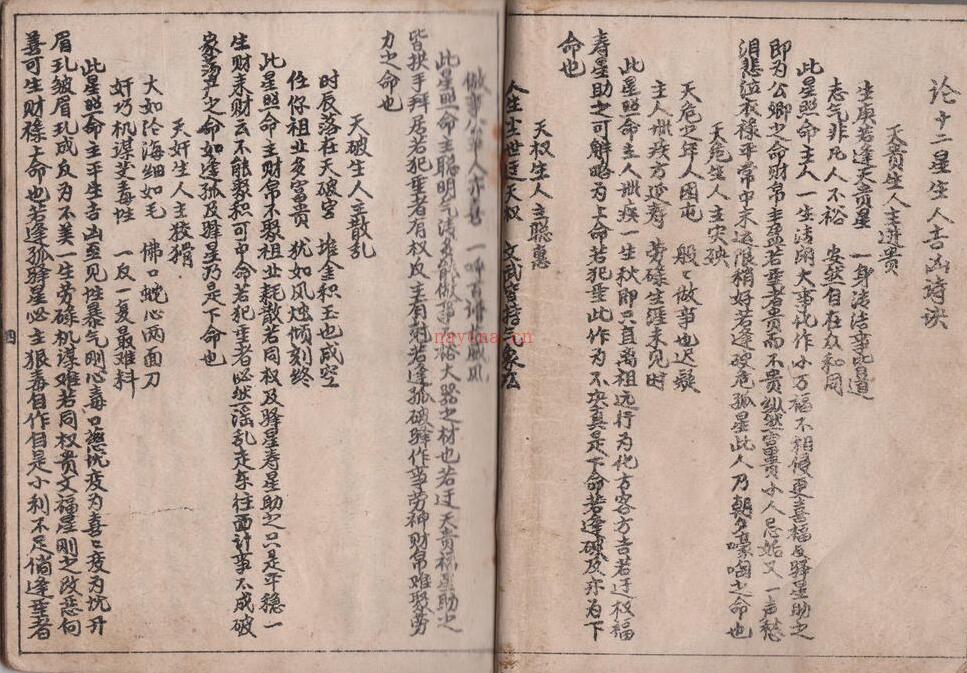 论十二星生人吉凶诗诀
天贵生人主进贵
生庚若逢天贵星 一身清洁事皆道
志气非凡人不裕 安然自在众和同
此星照命主人一生清闲大事化作小万福不相侵更喜福及驿星助之
即为公卿之命财帛丰盈若重者贵而不贵纵然富贵小人忌妬又一声愁
泪悲泣衣禄平常中末运限稍好若逢破危孤星此人乃朝夕嚎啕之命也
天危生人主灾殃
天危少年人困屯 般般做事也迟疑
主人洲疾方延寿 劳碌生涯未见时
此星照命主人洲疾一生狱即只宜离祖远行为化方客方吉若迂权福
寿星助之可解略为上命若犯重此作为不决真是下命若逢破及亦为下
命也
天权生人主聪惠
人生生世迂天权 文武皆
做事公平人亦喜 一呼百诺
此星照命主聪明气清多能做事宽裕大器之材也若迂天贵福星助之
皆拱手拜居若犯重者有权反主有克若逢孤破驿作事劳神财帛难聚劳
力之命也
天破生人主散乱
时辰落在天破宫 堆金积玉也成空
任你祖业多富贵 犹如风烛倾刻终
此星照命主财帛不聚祖业耗散若同权及驿星寿星助之只是平稳一
生财来财去不能聚积可中命若犯重者必然淫乱走东往西计事不成破
家荡产之命如逢孤及驿星乃是下命也
天奸生人主狡猾
大如沧海细如毛 佛口蛇心两面刀
奸巧机谋多毒性 一反一复最难料
此星照命主平生吉凶互见性暴气刚心毒口慈忧疫为喜喜疫为忧开
眉玐皱眉玐成反为不美一生劳碌机谋难若同权贵文福星刚之改恶向
善可生财禄上命也若逢孤驿星必主狠毒自作自是小利不足倘逢重者
四
nayona.cn